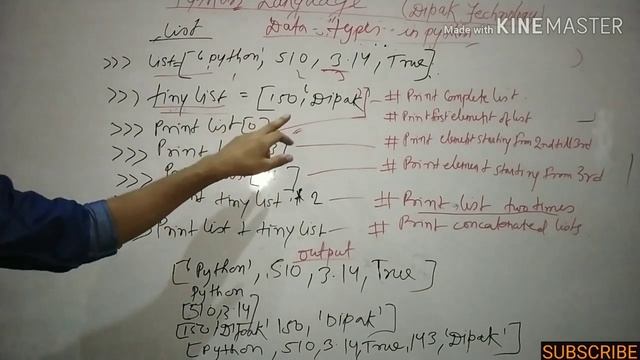 Python Language (Dipak Technology)
Made with KINEMASTER
List Data-types in pyth
>>> List=['Python', 510, 3.14, True]
>>> tiny list = [150,'Dipak'] # Print complete list.
# Print first element of list
>>> Print list[0]
# Print element starting from 2nd till 3rd
>>> Print
>>> # Print element starting from 3rd
Print tiny list * 2 # Print list two times
Print list + tiny list # Print concatenated lists
output
['Python', 510, 3.14, True]
Python
[510, 3.14]
[150,'Dipak' 150, 'Dipak']
[Python, 510, 3.14, True, 143, 'Dipak']
SUBSCRIBE